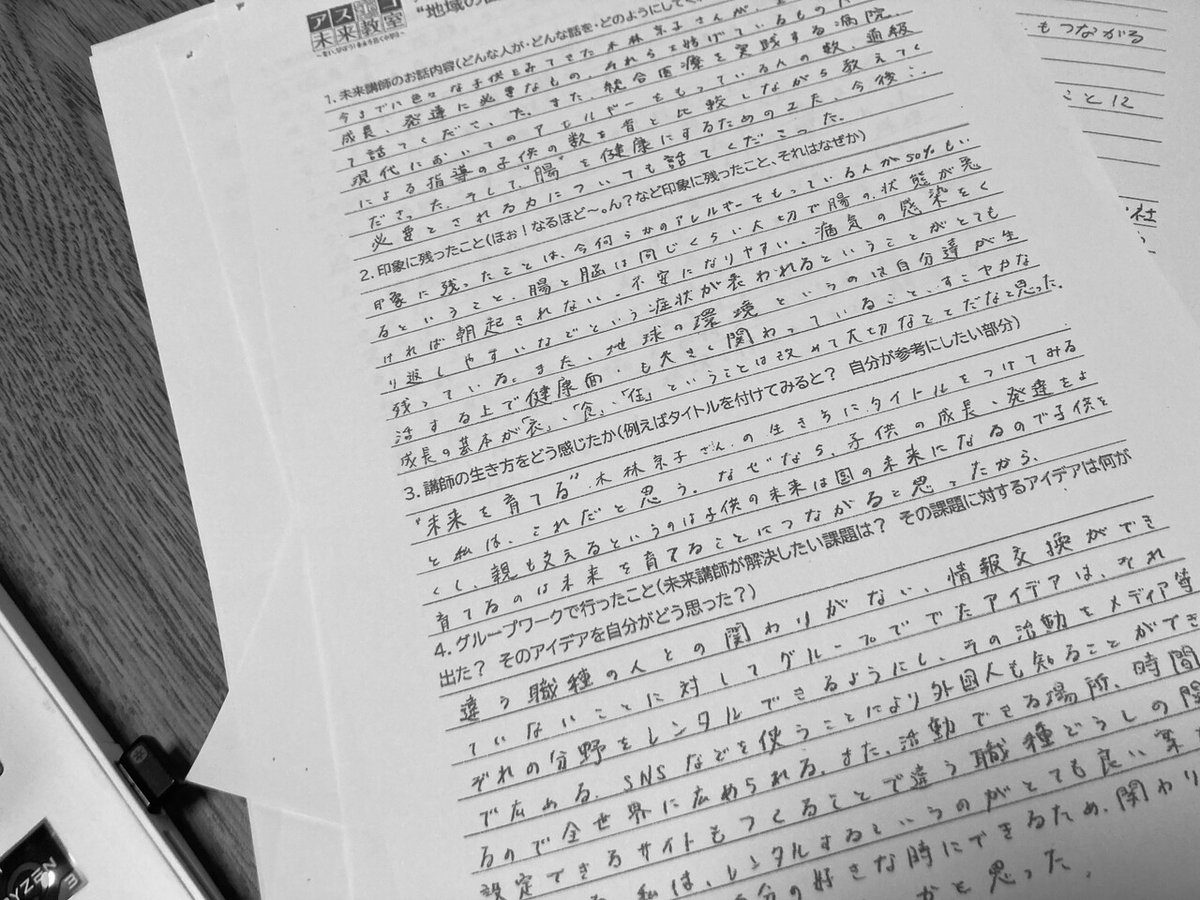 アス
未来教室
"地域の
1. 未来講師のお話内容(どんな人が・どんな話を・どのようにしてく
今まで色々な子供をみてきた木林京子さんが、
成長、発達に必要なもの、
て話てくださった。また、統合医療を実践する病院
現代においてのアレルギーをもっている人の数、通級
による指導の子供の数を昔と比較しながら教えてく
ださった。そして、"腸"を健康にするための工夫、今後
必要とされる力についても話てくださった。
2. 印象に残ったこと(ほぉ!なるほど〜。ん?など印象に残ったこと、それはなぜか)
印象に残ったことは、今何らかのアレルギーをもっている人が50%もい
るということ、腸と脳は同じくらい大切で腸の状態が悪
ければ朝起きれない、不安になりやすい、病気の感染をく
り返しやすいなどという症状が表われるということがとても
残っている。また、地球の環境というのは自分達が生
活する上で健康面にも大きく関わっていること、すこやかな
成長の基本が「衣」、「食」、「住」ということは改めて大切なことだなと思った。
3. 講師の生き方をどう感じたか(例えばタイトルを付けてみると? 自分が参考にしたい部分)
"未来を育てる" 木林京子さんの生き方にタイトルをつけてみる
と私は、これだと思う。なぜなら、子供の成長、発達をよ
くし、親も支えるというのは子供の未来は国の未来になるので子供を
育てるのは未来を育てることにつながると思ったから。
4. グループワークで行ったこと(未来講師が解決したい課題は? その課題に対するアイデアは何が
出た? そのアイデアを自分がどう思った?)
違う職種の人との関わりがない、情報交換ができ
ていないことに対してグループででたアイデアは、それ
ぞれの分野をレンタルできるようにし、その活動をメディア等
で広める。SNSなどを使うことにより外国人も知ることができ
るので全世界に広められる。また、活動できる場所、時間
設定できるサイトもつくることで違う職種どうしの関
私は、レンタルするというのがとても良い案
分の好きな時にできるため、関わり
かと思った。
もつながる
こと12
社
RYZEN
3